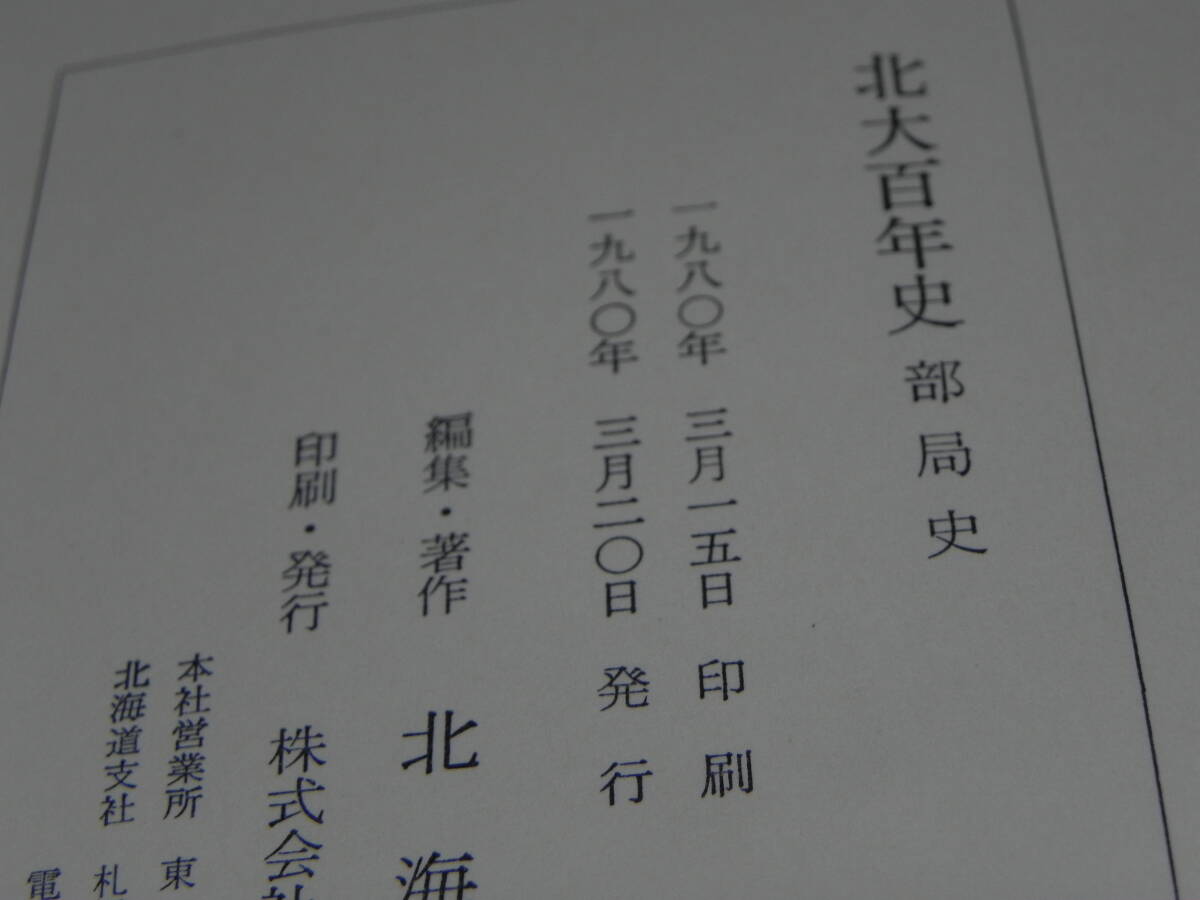 北大百年史 部局史
一九八〇年 三月一五日 印刷
一九八〇年 三月二〇日 発行
編集・著作 北海
印刷・発行 株式会社
本社営業所 東
北海道支社 札
電